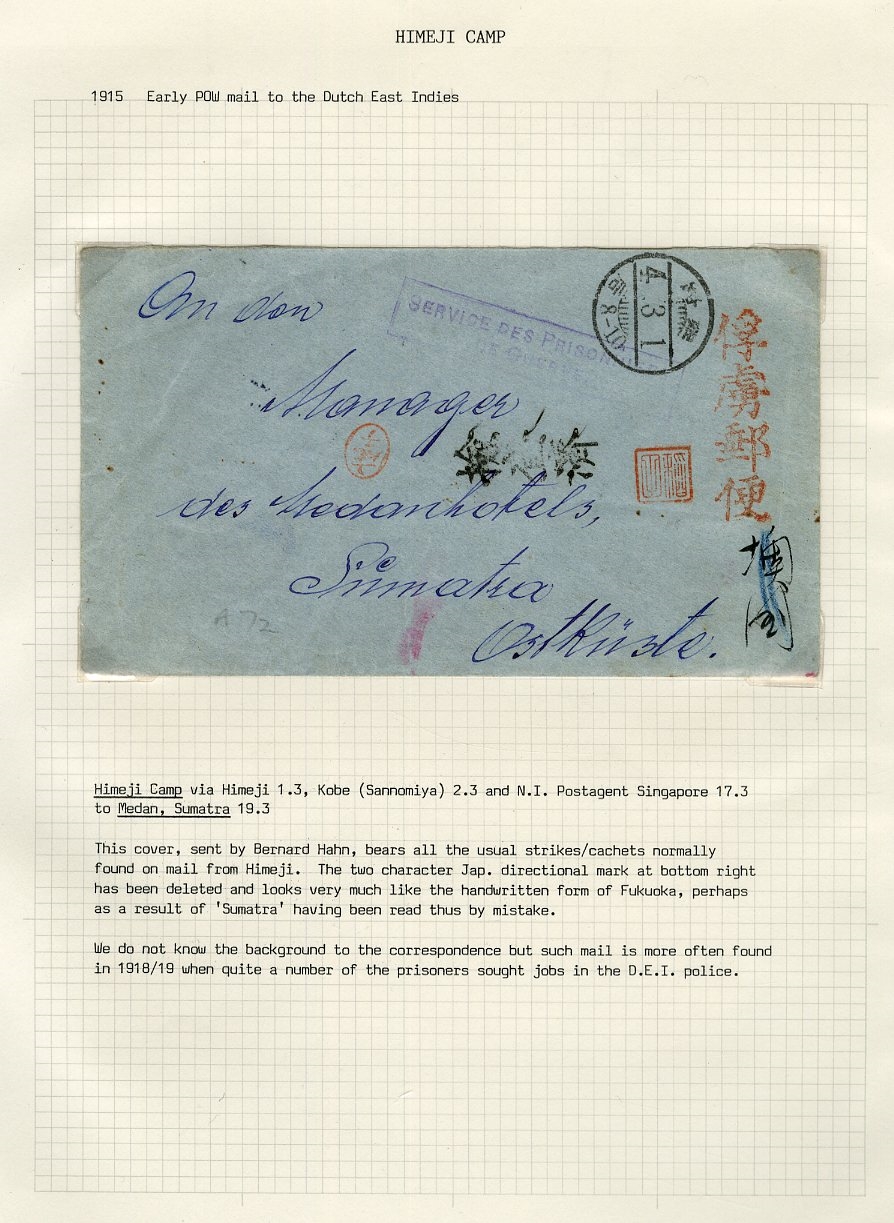 HIMEJI CAMP
1915 Early POW mail to the Dutch East Indies
An den
SERVICE DES PRISON
DE GUERRE
4.3.1
俘虜郵便
Manager
des Medanhotels,
Sumatra
Ostküste.
A 72
Himeji Camp via Himeji 1.3, Kobe (Sannomiya) 2.3 and N.I. Postagent Singapore 17.3
to Medan, Sumatra 19.3
This cover, sent by Bernard Hahn, bears all the usual strikes/cachets normally
found on mail from Himeji. The two character Jap. directional mark at bottom right
has been deleted and looks very much like the handwritten form of Fukuoka, perhaps
as a result of 'Sumatra' having been read thus by mistake.
We do not know the background to the correspondence but such mail is more often found
in 1918/19 when quite a number of the prisoners sought jobs in the D.E.I. police.